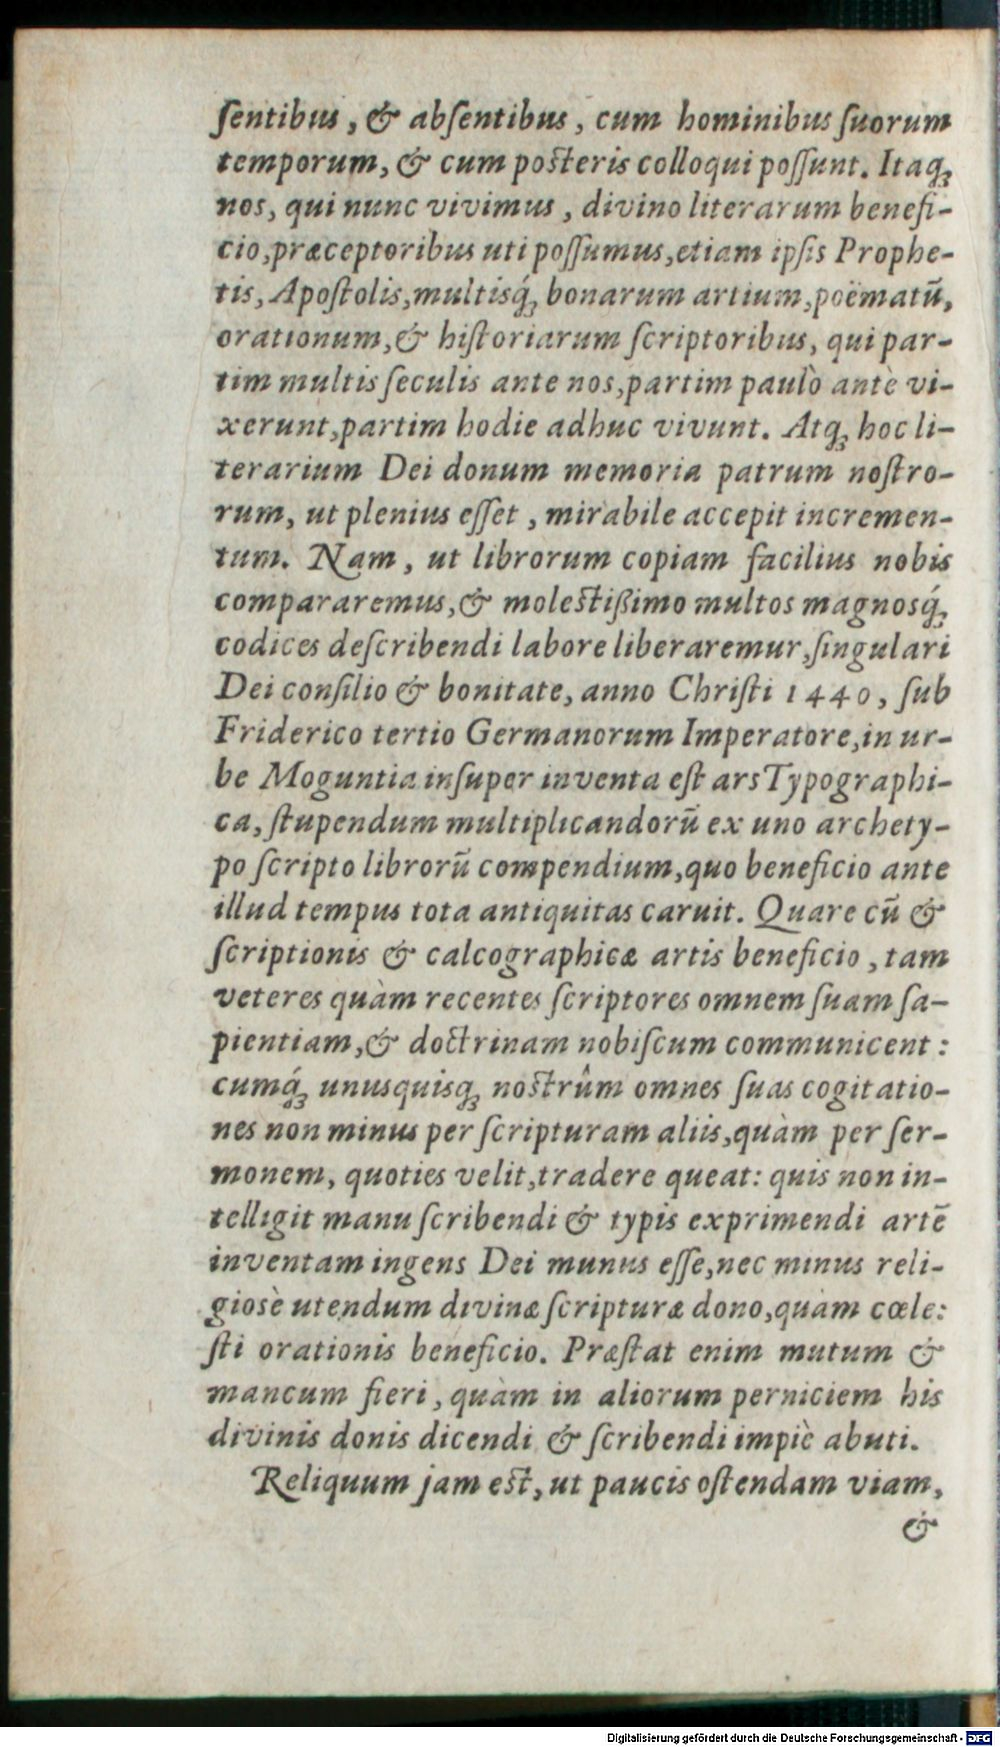 ſentibus, & abſentibus, cum hominibus ſuorum
temporum, & cum poſteris colloqui poſſunt. Itaqꝫ
nos, qui nunc vivimus, divino literarum benefi-
cio, præceptoribus uti poſſumus, etiam ipſis Prophe-
tis, Apoſtolis, multisq́ꝫ bonarum artium, poëmatũ,
orationum, & hiſtoriarum ſcriptoribus, qui par-
tim multis ſeculis ante nos, partim paulò antè vi-
xerunt, partim hodie adhuc vivunt. Atqꝫ hoc li-
terarium Dei donum memoria patrum noſtro-
rum, ut plenius eſſet, mirabile accepit incremen-
tum. Nam, ut librorum copiam facilius nobis
compararemus, & moleſtißimo multos magnosq́ꝫ
codices deſcribendi labore liberaremur, ſingulari
Dei conſilio & bonitate, anno Chriſti 1440, ſub
Friderico tertio Germanorum Imperatore, in ur-
be Moguntia inſuper inventa eſt ars Typographi-
ca, ſtupendum multiplicandorũ ex uno archety-
po ſcripto librorũ compendium, quo beneficio ante
illud tempus tota antiquitas caruit. Quare cũ &
ſcriptionis & calcographicæ artis beneficio, tam
veteres quàm recentes ſcriptores omnem ſuam ſa-
pientiam, & doctrinam nobiſcum communicent:
cumq́ꝫ unusquisqꝫ noſtrûm omnes ſuas cogitatio-
nes non minus per ſcripturam aliis, quàm per ſer-
monem, quoties velit, tradere queat: quis non in-
telligit manu ſcribendi & typis exprimendi artẽ
inventam ingens Dei munus eſſe, nec minus reli-
gioſè utendum divinæ ſcripturæ dono, quàm cœle:
ſti orationis beneficio. Præſtat enim mutum &
mancum fieri, quàm in aliorum perniciem his
divinis donis dicendi & ſcribendi impiè abuti.
Reliquum jam eſt, ut paucis oſtendam viam,
&
Digitalisierung gefördert durch die Deutsche Forschungsgemeinschaft - DFG